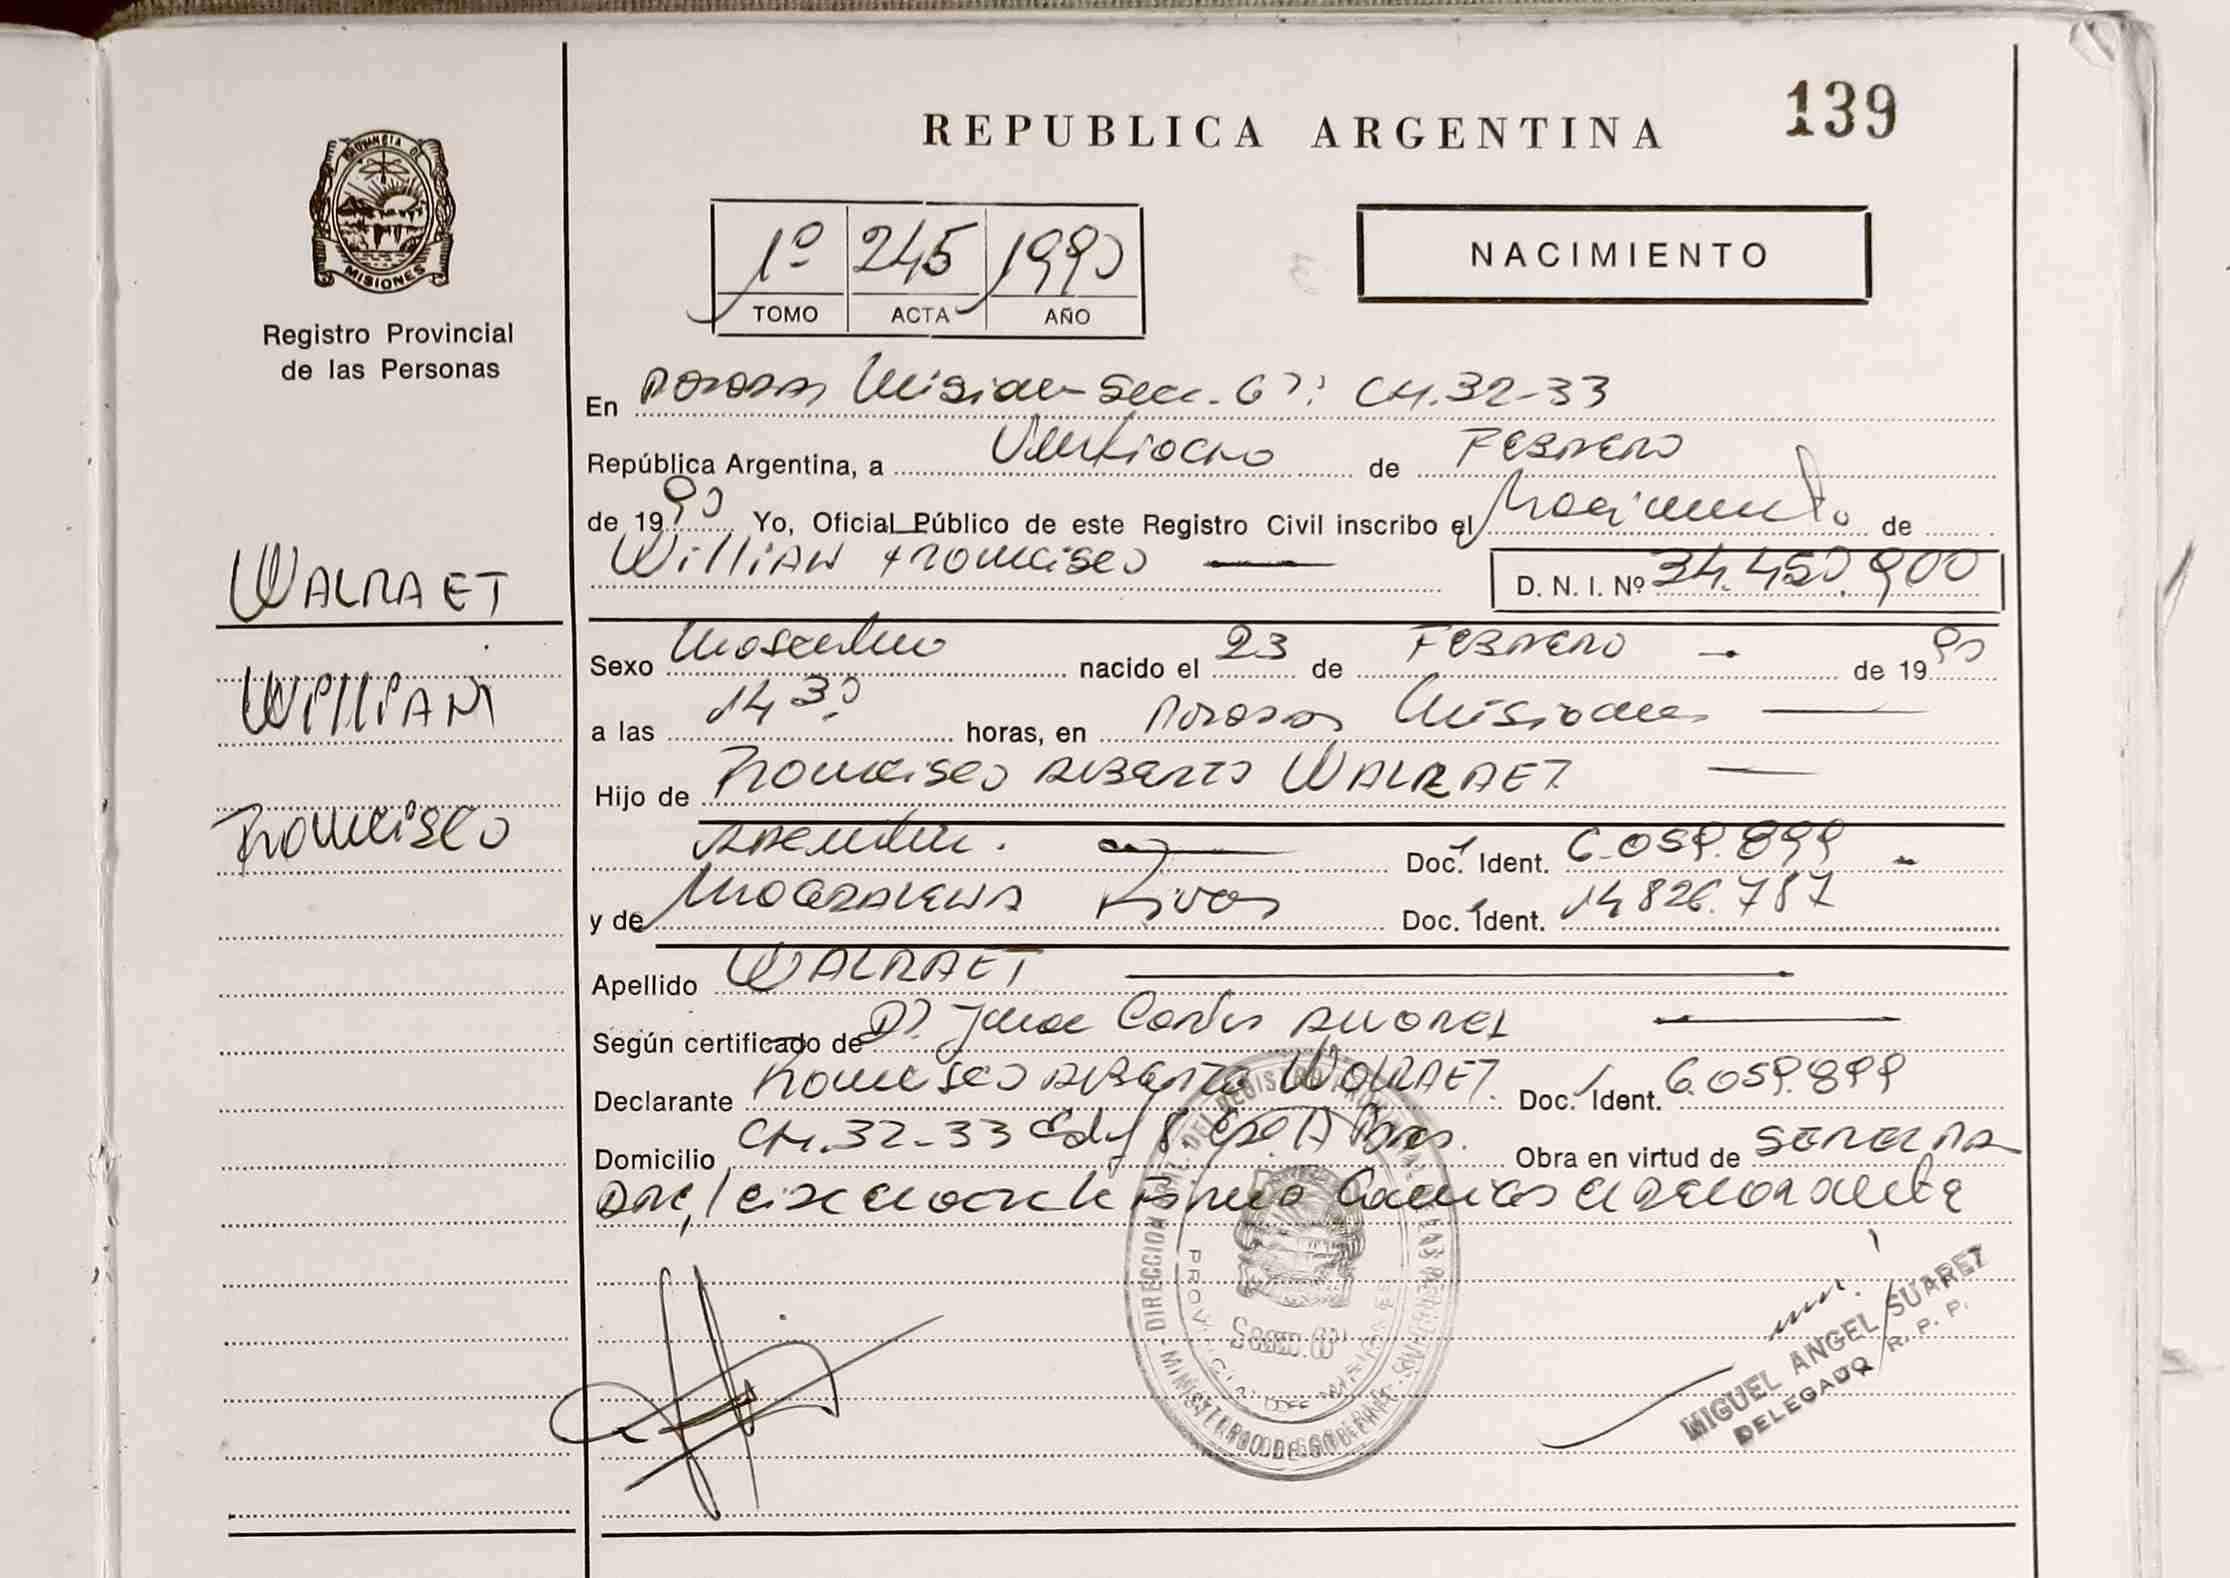 139
REPUBLICA ARGENTINA
PROVINCIA DE
MISIONES
Registro Provincial
de las Personas
1º 245 1990
TOMO ACTA AÑO
NACIMIENTO
En Posadas Misiones Secc. 6ª: CH.32-33
República Argentina, a Veintiocho de FEBRERO
de 1990 Yo, Oficial Público de este Registro Civil inscribo el Nacimiento de
Willian Francisco D. N. I. Nº 34.450.900
WALRAET
WILLIAN
Francisco
Sexo Masculino nacido el 23 de FEBRERO de 1990
a las 14 30 horas, en Posadas Misiones
Hijo de Francisco Alberto WALRAET
Argentin. Doc. Ident. 6.059.899
y de Magdalena Rivas Doc. Ident. 14.826.787
Apellido WALRAET
Según certificado de Dr. Carlos
Declarante Francisco Alberto WALRAET. Doc. Ident. 6.059.899
Domicilio CH.32-33 Edif 8. Obra en virtud de
el declarante
DIRECCION DEL REGISTRO PROVINCIAL DE LAS PERSONAS
MINISTERIO DE GOBIERNO
MIGUEL ANGEL SUAREZ
DELEGADO R. P. P.